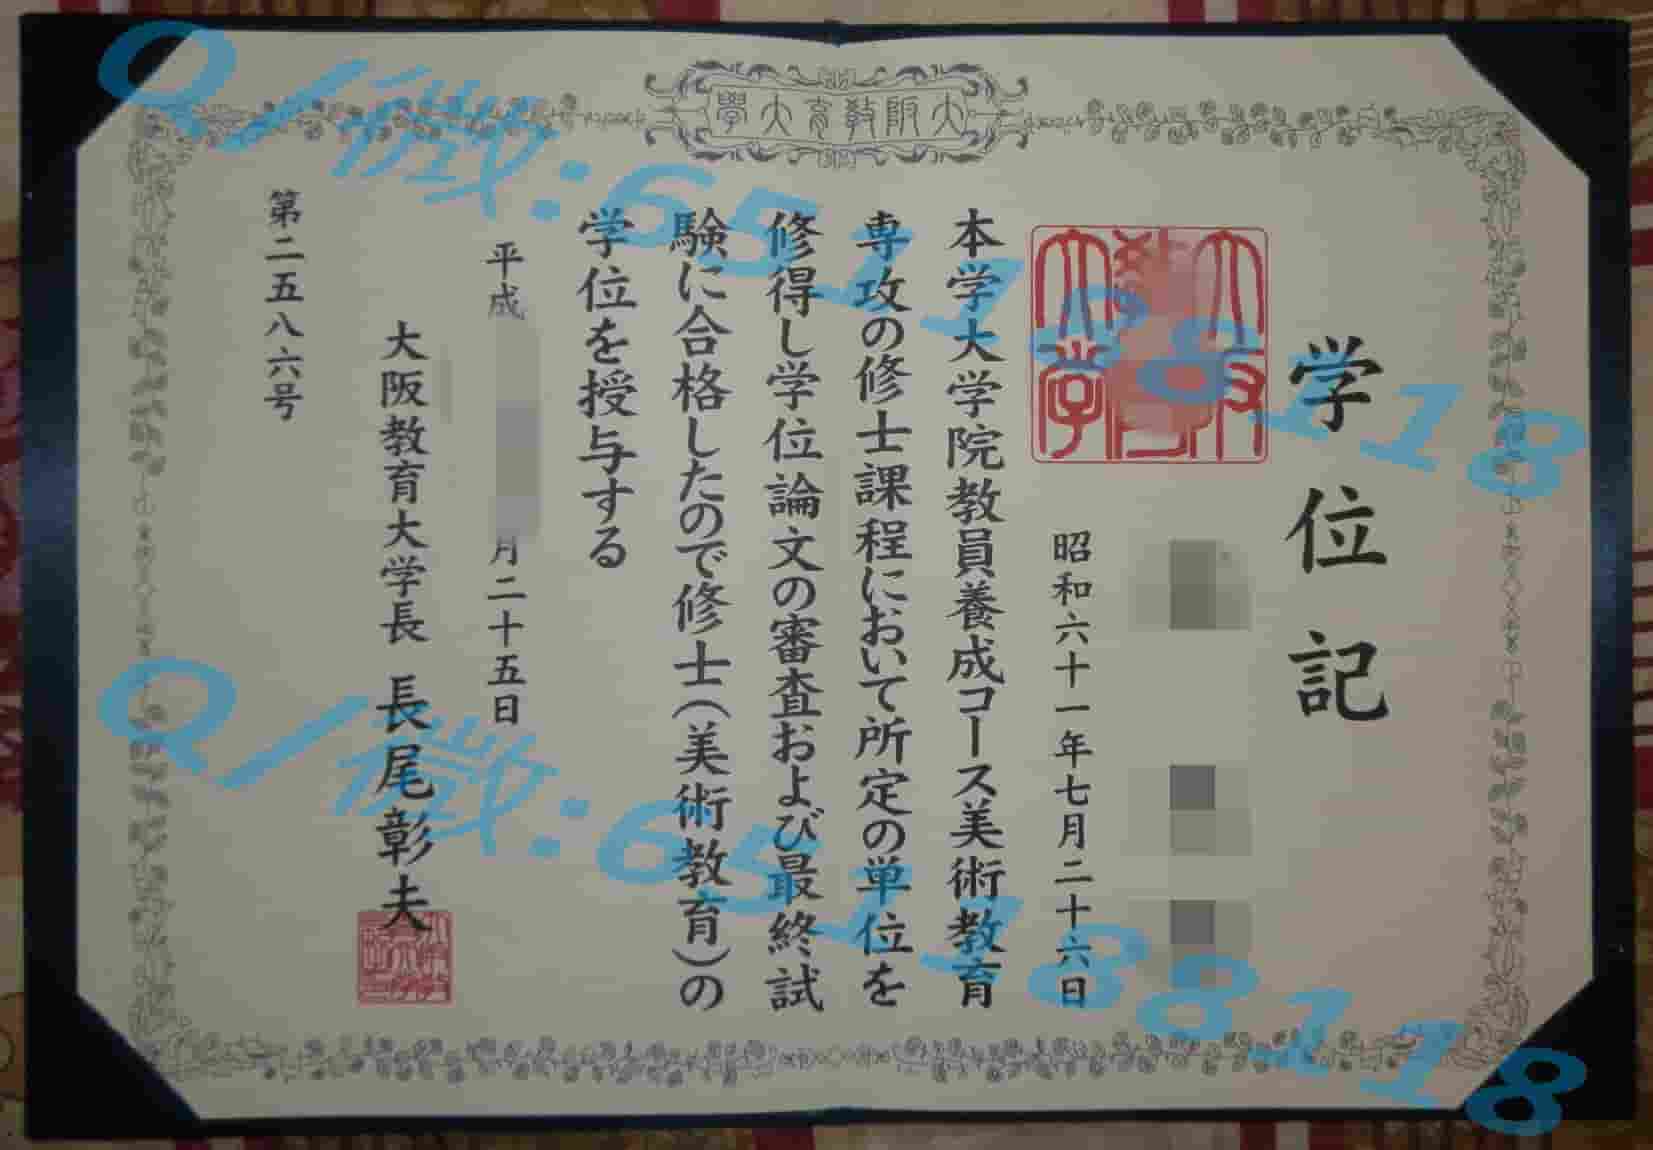 大阪教育大學
学位記
昭和六十一年七月二十六日
本学大学院教員養成コース美術教育
専攻の修士課程において所定の単位を
修得し学位論文の審査および最終試
験に合格したので修士(美術教育)の
学位を授与する
平成
月二十五日
大阪教育大学長 長尾彰夫
第二五八六号
Q/微:
Q/微: